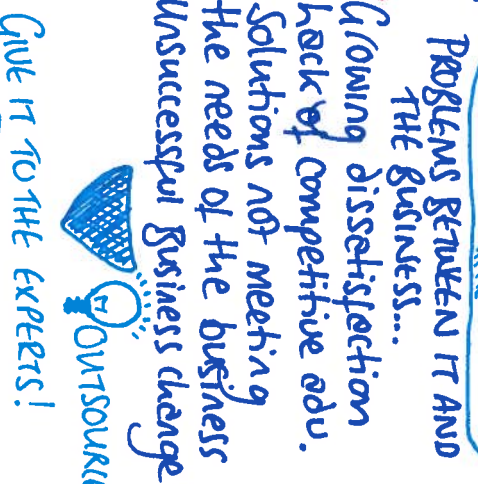 PROBLEMS BETWEEN IT AND
THE BUSINESS...
Growing dissatisfaction
Lack of competitive adv.
Solutions not meeting
the needs of the business
Unsuccessful Business change
IT
GIVE IT TO THE EXPERTS!